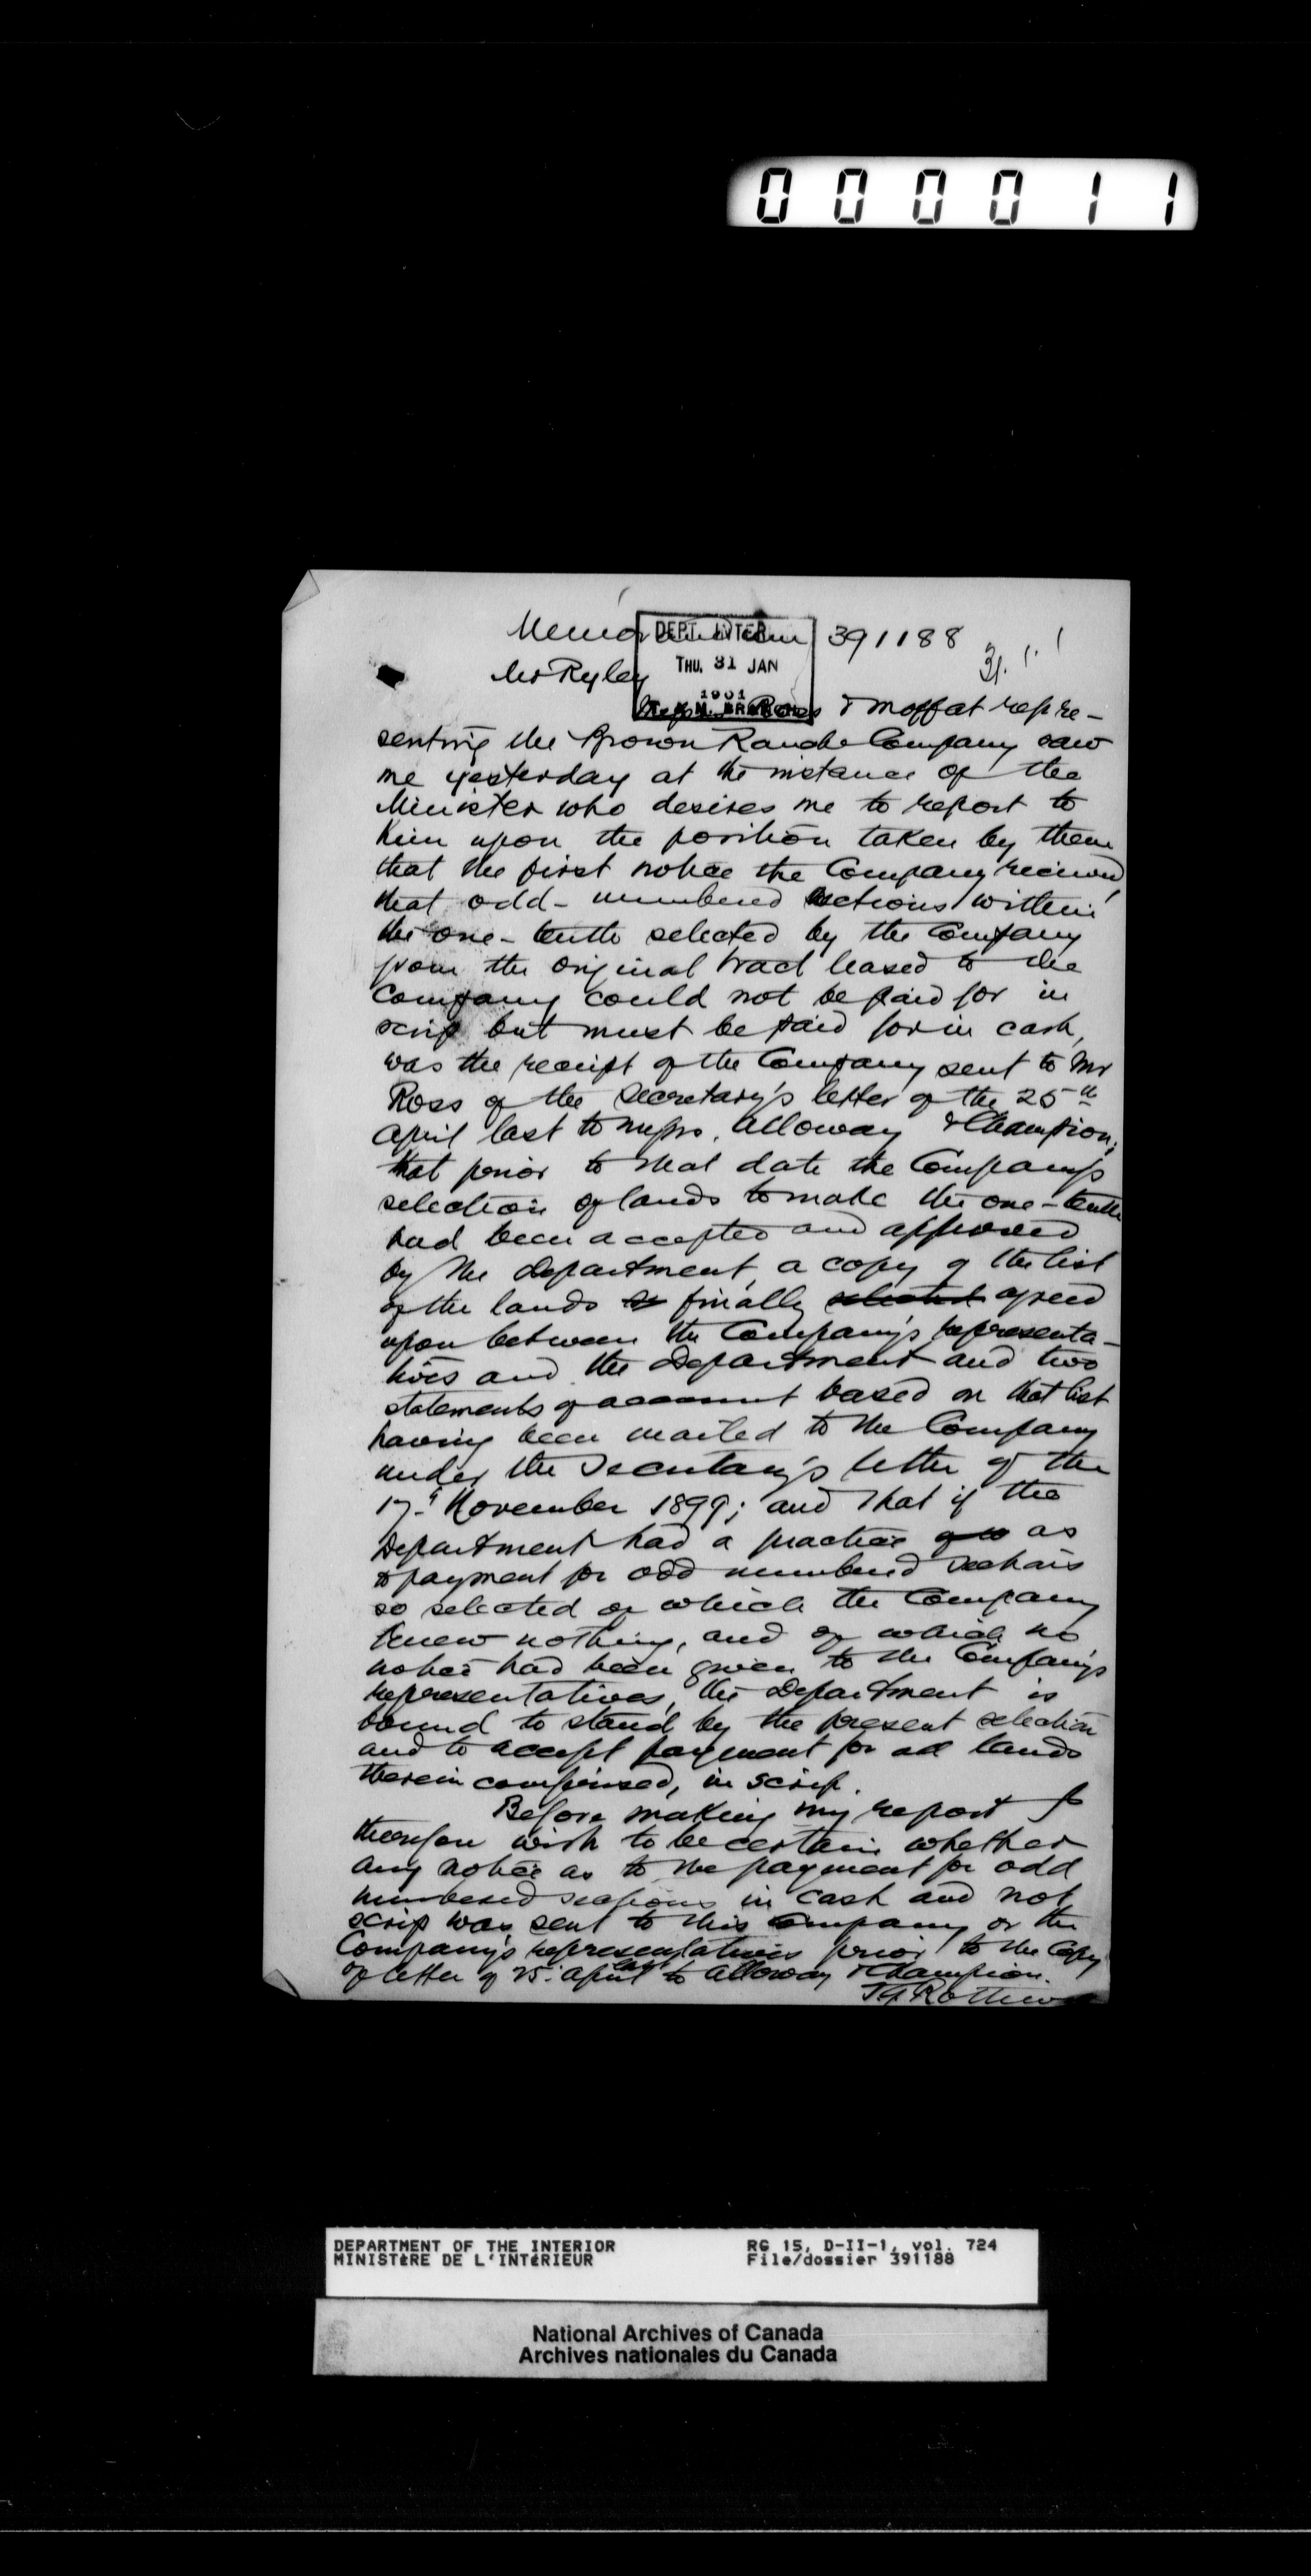 000011
Memorandum 391188
31.1.1
DEPT. INTER
THU. 31 JAN
1901
T. & M. BRANCH
Mr Ryley
Messrs Ross & Moffat repre-
senting the Brown Ranche Company saw
me yesterday at the instance of the
Minister who desires me to report to
him upon the position taken by them
that the first notice the Company received
that odd-numbered sections within
the one-tenth selected by the Company
from the original tract leased to the
Company could not be paid for in
scrip but must be paid for in cash,
was the receipt of the Company sent to Mr
Ross of the Secretary's letter of the 25th
April last to Messrs. Alloway & Champion;
that prior to that date the Company's
selection of lands to make the one-tenth
had been accepted and approved
by the Department, a copy of the list
of the lands so finally selected agreed
upon between the Company's representa-
tives and the Department and two
statements of account based on that list
having been mailed to the Company
under the Secretary's letter of the
17th November 1899; and that if the
Department had a practice as
to payment for odd numbered sections
so selected of which the Company
knew nothing, and of which no
notice had been given to the Company's
representatives, the Department is
bound to stand by the present selection
and to accept payment for all lands
therein comprised, in scrip.
Before making my report I
therefore wish to be certain whether
any notice as to the payment for odd
numbered sections in cash and not
scrip was sent to this Company or the
Company's representatives prior to the copy
of letter of 25. April last to Alloway & Champion.
T G Rothwell
DEPARTMENT OF THE INTERIOR RG 15, D-II-1, vol. 724
MINISTÈRE DE L'INTÉRIEUR File/dossier 391188
National Archives of Canada
Archives nationales du Canada